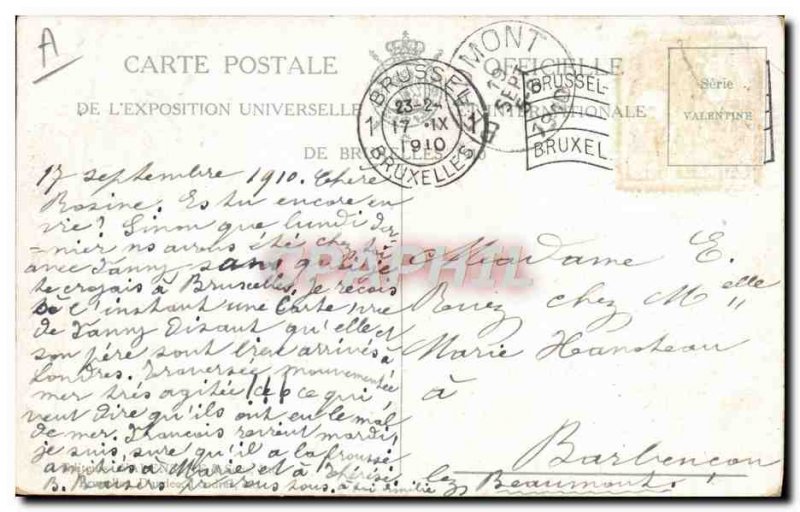 A
CARTE POSTALE OFFICIELLE
DE L'EXPOSITION UNIVERSELLE INTERNATIONALE
DE BRUXELLES
BRUSSEL
1 23-2- 1
17 IX
1910
BRUXELLES
MONT
19 SEPT
1910
BRUSSEL-
BRUXEL
Série
VALENTINE
17 septembre 1910. Chère
Rosine. Es tu encore en
vie? Sinon que lundi der-
nier ns avons été chez toi
avec Fanny, sans quoi je
te croyais à Bruxelles. Je reçois
à l'instant une Carte vue
de Fanny disant qu'elle et
son père sont bien arrivés à
Londres. Traversée mouvementée
mer très agitée ce qui
veut dire qu'ils ont eu le mal
de mer. François revient mardi,
je suis sûre qu'il a la frousse
amitiés à Marie et à Thérèse
B. Baisers pour vous tous.
Madame E.
Rouez chez Melle
Marie Hanoteau
à
Barbençon
lez Beaumont
DELCAMPHIL